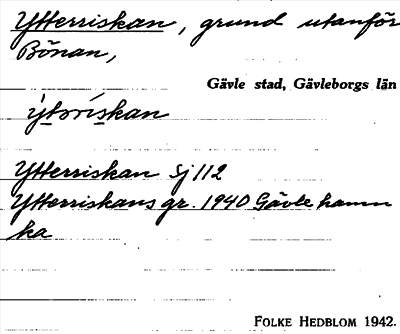 Ytterriskan, grund utanför
Bönan,
Gävle stad, Gävleborgs län
ỳtərískan
Ytterriskan Sj 112
Ytterriskans gr. 1940 Gävle hamn
ka
FOLKE HEDBLOM 1942.